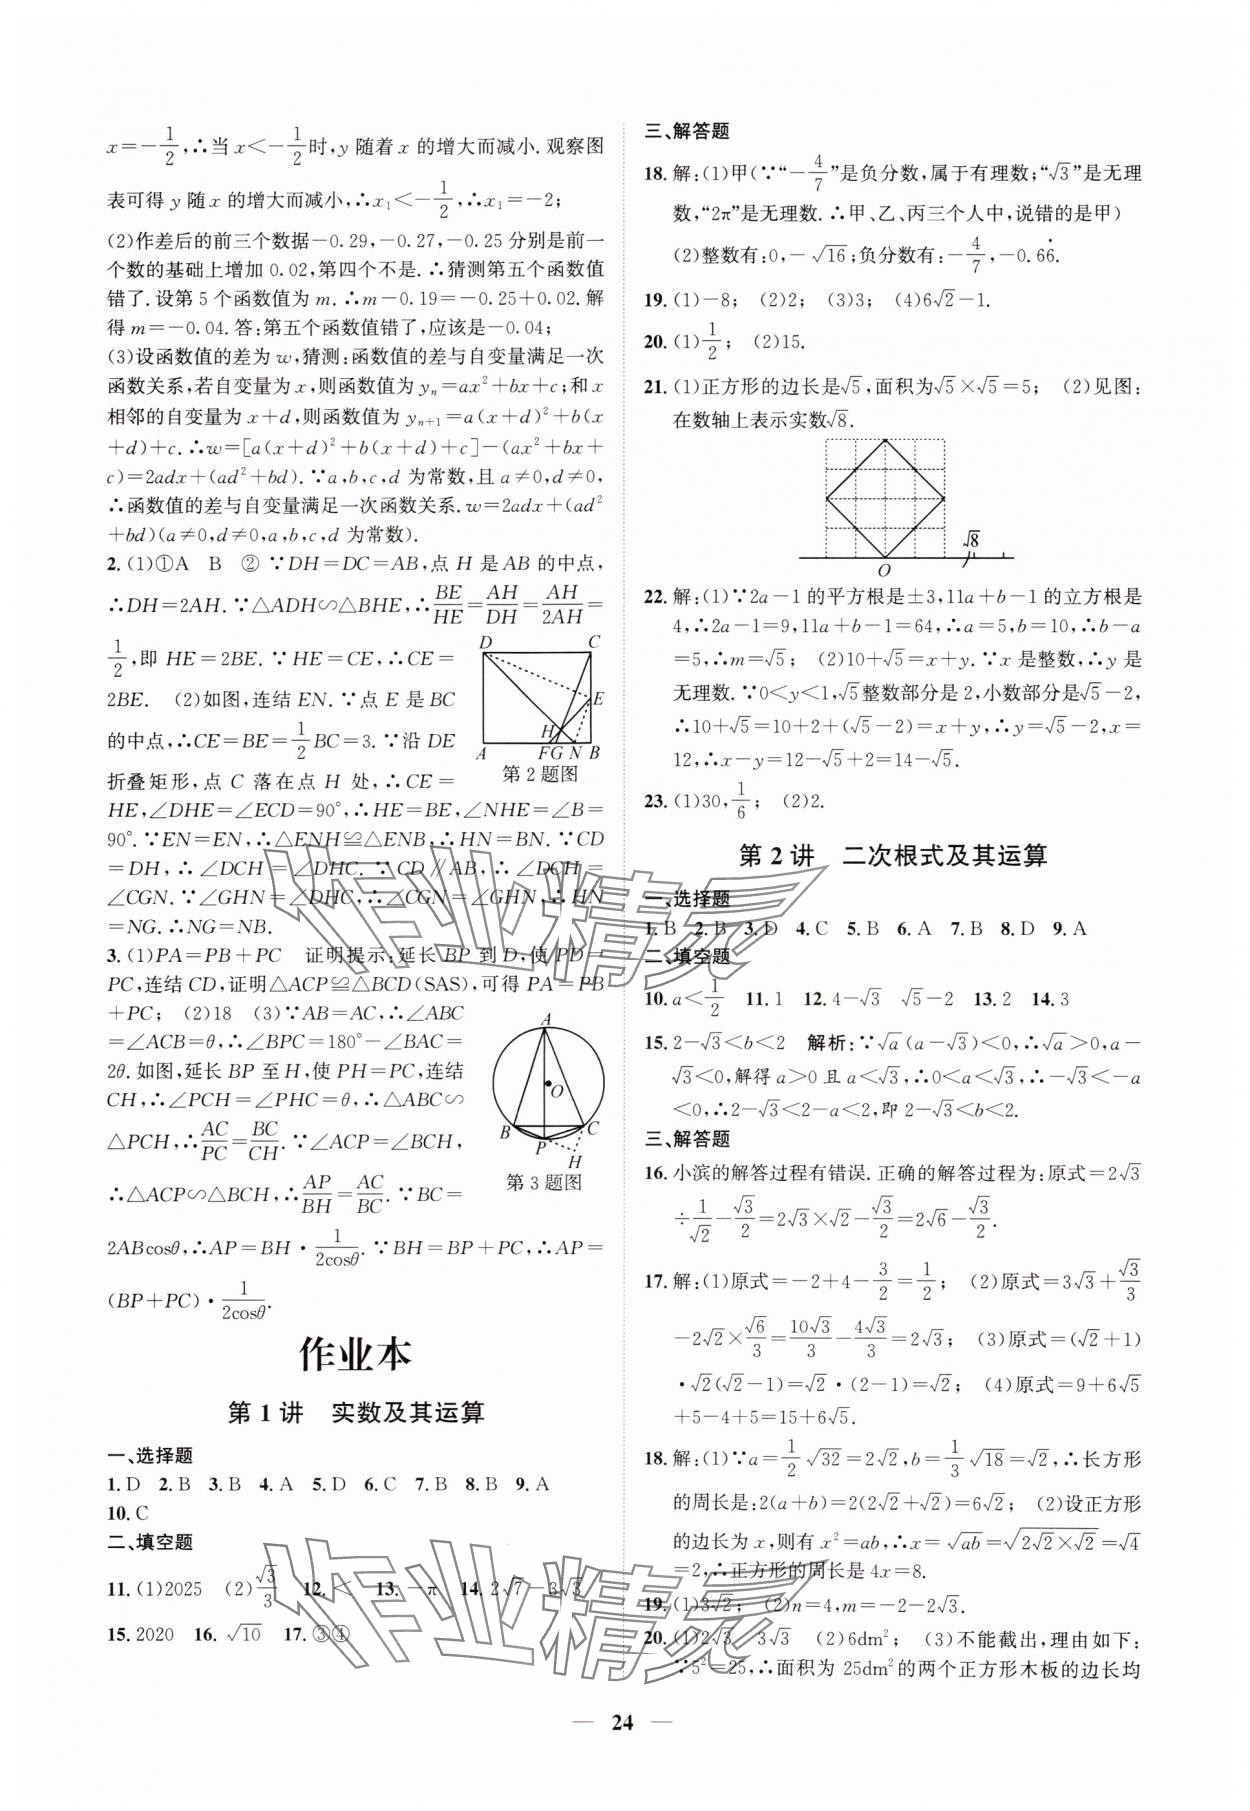 x=-1/2,∴当 x<-1/2时,y 随着 x 的增大而减小.观察图
表可得 y 随 x 的增大而减小,∴x₁<-1/2,∴x₁=-2;
(2)作差后的前三个数据-0.29,-0.27,-0.25 分别是前一
个数的基础上增加 0.02,第四个不是.∴猜测第五个函数值
错了.设第 5 个函数值为 m.∴m-0.19=-0.25+0.02.解
得 m=-0.04.答:第五个函数值错了,应该是-0.04;
(3)设函数值的差为 w,猜测:函数值的差与自变量满足一次
函数关系,若自变量为 x,则函数值为 yₙ=ax²+bx+c;和 x
相邻的自变量为 x+d,则函数值为 yₙ₊₁=a(x+d)²+b(x
+d)+c.∴w=[a(x+d)²+b(x+d)+c]-(ax²+bx+
c)=2adx+(ad²+bd).∵a,b,c,d 为常数,且 a≠0,d≠0,
∴函数值的差与自变量满足一次函数关系.w=2adx+(ad²
+bd)(a≠0,d≠0,a,b,c,d 为常数).
2.(1)①A B ②∵DH=DC=AB,点 H 是 AB 的中点,
∴DH=2AH.∵△ADH∽△BHE,∴BE/HE=AH/DH=AH/2AH=
1/2,即 HE=2BE.∵HE=CE,∴CE=
2BE. (2)如图,连结 EN.∵点 E 是 BC
的中点,∴CE=BE=1/2BC=3.∵沿 DE
折叠矩形,点 C 落在点 H 处,∴CE=
D C E H A F G N B
第 2 题图
HE,∠DHE=∠ECD=90°,∴HE=BE,∠NHE=∠B=
90°.∵EN=EN,∴△ENH≌△ENB,∴HN=BN.∵CD
=DH,∴∠DCH=∠DHC.∵CD∥AB,∴∠DCH=
∠CGN.∵∠DHC=∠GHN,∴∠CGN=∠GHN,∴HN
=NG.∴NG=NB.
3.(1)PA=PB+PC 证明提示:延长 BP 到 D,使 PD=
PC,连结 CD,证明△ACP≌△BCD(SAS),可得 PA=PB
+PC; (2)18 (3)∵AB=AC,∴∠ABC
=∠ACB=θ,∴∠BPC=180°-∠BAC=
2θ.如图,延长 BP 至 H,使 PH=PC,连结
CH,∴∠PCH=∠PHC=θ,∴△ABC∽
△PCH,∴AC/PC=BC/CH.∵∠ACP=∠BCH,
∴△ACP∽△BCH,∴AP/BH=AC/BC.∵BC=
A O B C P H
第 3 题图
2ABcosθ,∴AP=BH·1/2cosθ.∵BH=BP+PC,∴AP=
(BP+PC)·1/2cosθ.
作业本
第 1 讲 实数及其运算
一、选择题
1.D 2.B 3.B 4.A 5.D 6.C 7.B 8.B 9.A
10.C
二、填空题
11.(1)2025 (2)√3/3 12.< 13.-π 14.2√7-3√3
15.2020 16.√10 17.③④
三、解答题
18.解:(1)甲(∵“-4/7”是负分数,属于有理数;“√3”是无理
数,“2π”是无理数.∴甲、乙、丙三个人中,说错的是甲)
(2)整数有:0,-√16;负分数有:-4/7,-0.66̇.
19.(1)-8; (2)2; (3)3; (4)6√2-1.
20.(1)1/2; (2)15.
21.(1)正方形的边长是√5,面积为√5×√5=5; (2)见图:
在数轴上表示实数√8.
√8
O
22.解:(1)∵2a-1 的平方根是±3,11a+b-1 的立方根是
4,∴2a-1=9,11a+b-1=64,∴a=5,b=10,∴b-a
=5,∴m=√5; (2)10+√5=x+y.∵x 是整数,∴y 是
无理数.∵0<y<1,√5整数部分是 2,小数部分是√5-2,
∴10+√5=10+2+(√5-2)=x+y,∴y=√5-2,x=
12,∴x-y=12-√5+2=14-√5.
23.(1)30,1/6; (2)2.
第 2 讲 二次根式及其运算
一、选择题
1.B 2.B 3.D 4.C 5.B 6.A 7.B 8.D 9.A
二、填空题
10.a<1/2 11.1 12.4-√3 √5-2 13.2 14.3
15.2-√3<b<2 解析:∵√a(a-√3)<0,∴√a>0,a-
√3<0,解得 a>0 且 a<√3,∴0<a<√3,∴-√3<-a
<0,∴2-√3<2-a<2,即 2-√3<b<2.
三、解答题
16.小滨的解答过程有错误.正确的解答过程为:原式=2√3
÷1/√2-√3/2=2√3×√2-√3/2=2√6-√3/2.
17.解:(1)原式=-2+4-3/2=1/2; (2)原式=3√3+√3/3
-2√2×√6/3=10√3/3-4√3/3=2√3; (3)原式=(√2+1)
·√2(√2-1)=√2·(2-1)=√2; (4)原式=9+6√5
+5-4+5=15+6√5.
18.解:(1)∵a=1/2√32=2√2,b=1/3√18=√2,∴长方形
的周长是:2(a+b)=2(2√2+√2)=6√2; (2)设正方形
的边长为 x,则有 x²=ab,∴x=√ab=√(2√2×√2)=√4
=2,∴正方形的周长是 4x=8.
19.(1)3√2; (2)n=4,m=-2-2√3.
20.(1)2√3 3√3 (2)6dm²; (3)不能截出,理由如下:
∵5²=25,∴面积为 25dm²的两个正方形木板的边长均
— 24 —
作业精灵
作业精灵